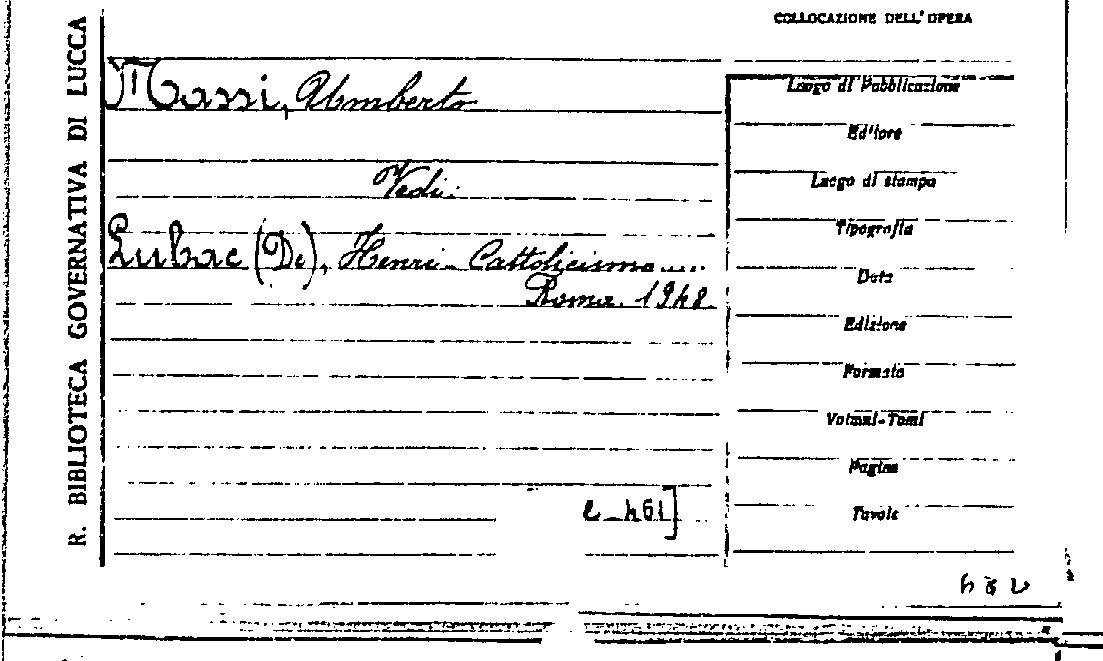 COLLOCAZIONE DELL'OPERA
R. BIBLIOTECA GOVERNATIVA DI LUCCA
Massi, Umberto
Vedi:
Lubac (De), Henri - Cattolicismo.....
Roma. 1948
Luogo di Pubblicazione
Editore
Luogo di stampa
Tipografia
Data
Edizione
Formato
Volumi-Tomi
Pagine
Tavole